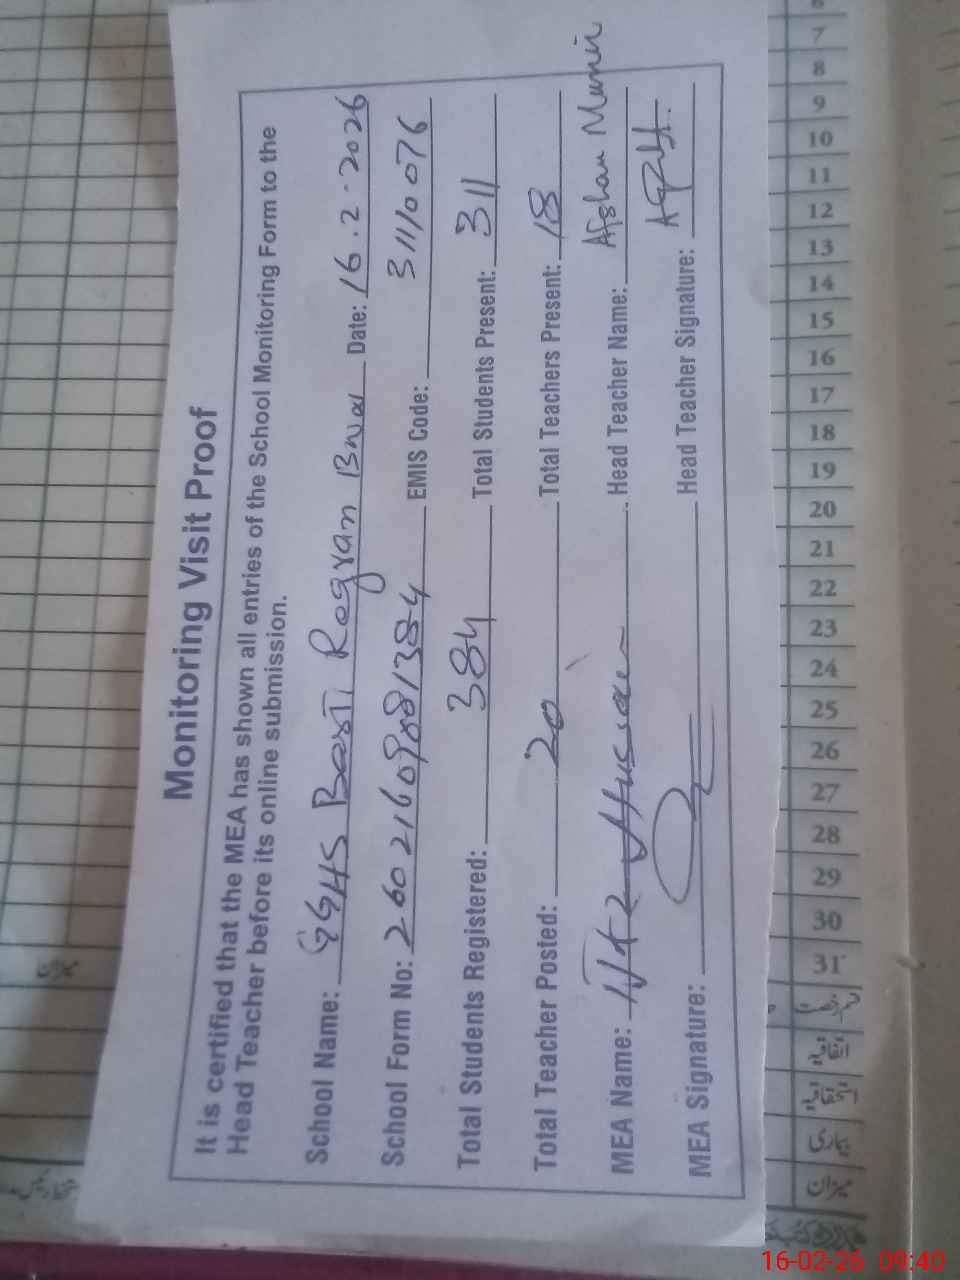 Monitoring Visit Proof
It is certified that the MEA has shown all entries of the School Monitoring Form to the
Head Teacher before its online submission.
School Name: GGHS Basti Regran Bwal Date: 16.2.2026
School Form No: 26021609881384 EMIS Code: 31110076
Total Students Registered: 384 Total Students Present: 311
Total Teacher Posted: 20 Total Teachers Present: 18
MEA Name: Hussain Head Teacher Name: Afshan Munir
MEA Signature: Head Teacher Signature:
6
7
8
9
10
11
12
13
14
15
16
17
18
19
20
21
22
23
24
25
26
27
28
29
30
31
قسم رخصت
اتفاقیہ
استحقاقیہ
بیماری
میزان
میزان
16-02-26 09:40